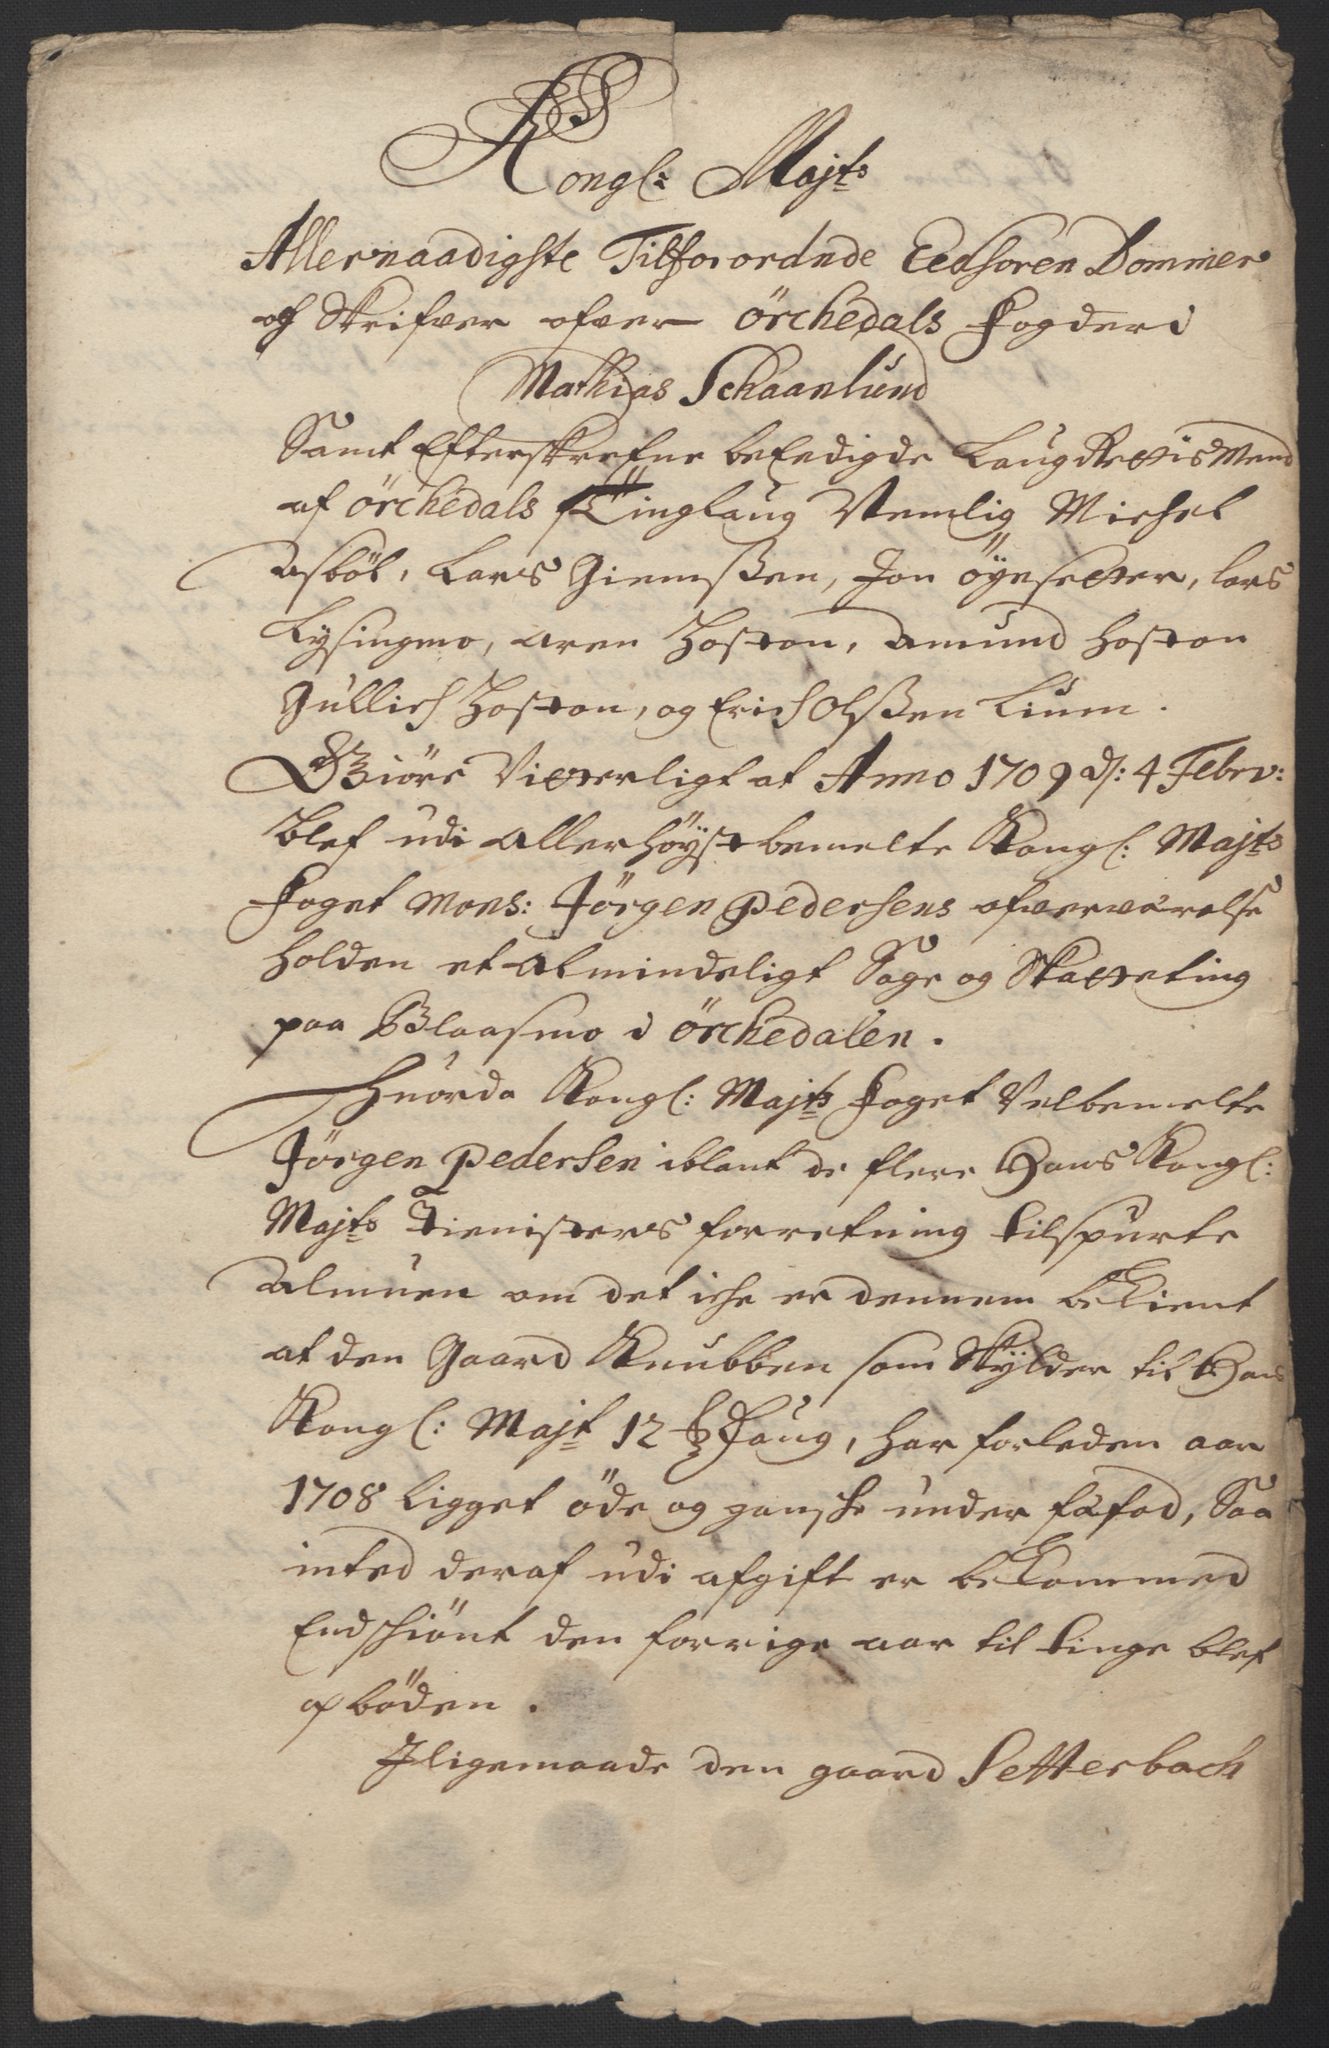 Kongl: Majts
Allernaadigste Tilforordnde Eedsoren Dommer
og Skrifver ofver Örchedals Fogderi
Mathias Schaanlund
Samt Efterskrefne beEedigde LaugRettis Mend
af Örchedals Tinglaug Nemlig Michel
Asböl, Lars Giemsßen, Jon Öyesetter, Lars
Lysingmo, Aren Hoston, Amund Hoston
Gullich Hoston, og Erich Olsßen Lium.
Giöre Vitterligt at Anno 1709 d: 4 Febrv:
Blef udi allerhöyst bemelte Kongl: Majts
Foget Mons: Jörgen Pedersens ofverværelse
holden et Almindeligt Sage og Skatteting
paa Blaasmo i Örchedalen.
Hvorda Kongl: Majts Foget Velbemelte
Jörgen Pedersen iblant de flere Hans Kongl:
Majts Tienisters forretning tilspurte
Almuen om det iche er dennem bekient
at den Gaard Knubben som Skylder til Hans
Kongl: Majt 12 Haug, har forleden aar
1708 ligget öde og gansche under fæfod, Saa
inted deraf udi afgift er bekommed
Endschiönt den forrige aar til tinge blef
opböden.
Jligemaade den gaard Setterbach